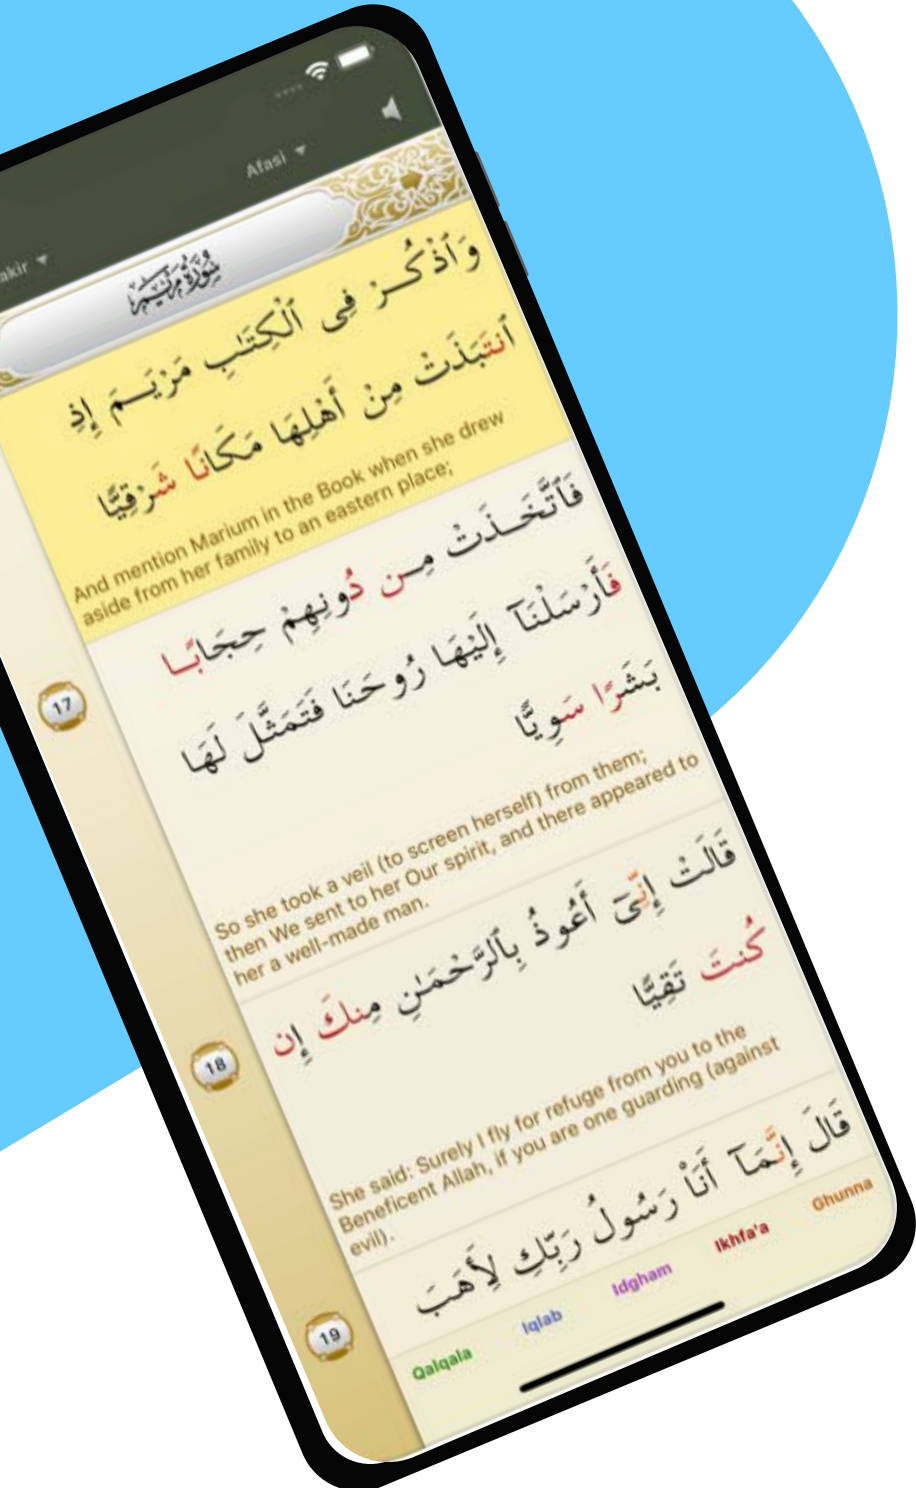 Afasi
akir
سُورَةُ مَرْيَم
وَٱذْكُرْ فِى ٱلْكِتَـٰبِ مَرْيَمَ إِذِ
ٱنتَبَذَتْ مِنْ أَهْلِهَا مَكَانًا شَرْقِيًّا
And mention Marium in the Book when she drew
aside from her family to an eastern place;
17
فَٱتَّخَذَتْ مِن دُونِهِمْ حِجَابًا
فَأَرْسَلْنَآ إِلَيْهَا رُوحَنَا فَتَمَثَّلَ لَهَا
بَشَرًا سَوِيًّا
So she took a veil (to screen herself) from them;
then We sent to her Our spirit, and there appeared to
her a well-made man.
18
قَالَتْ إِنِّىٓ أَعُوذُ بِٱلرَّحْمَـٰنِ مِنكَ إِن
كُنتَ تَقِيًّا
She said: Surely I fly for refuge from you to the
Beneficent Allah, if you are one guarding (against
evil).
19
قَالَ إِنَّمَآ أَنَا۠ رَسُولُ رَبِّكِ لِأَهَبَ
Qalqala Iqlab Idgham Ikhfa'a Ghunna